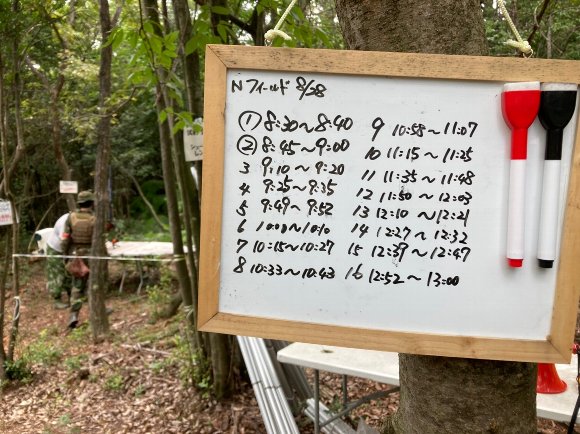 Nフィールド 8/28
① 8:30〜8:40
② 8:45〜9:00
3 9:10〜9:20
4 9:25〜9:35
5 9:49〜9:52
6 10:00〜10:10
7 10:15〜10:27
8 10:33〜10:43
9 10:58〜11:07
10 11:15〜11:25
11 11:35〜11:48
12 11:50〜12:03
13 12:10〜12:21
14 12:27〜12:32
15 12:39〜12:47
16 12:52〜13:00